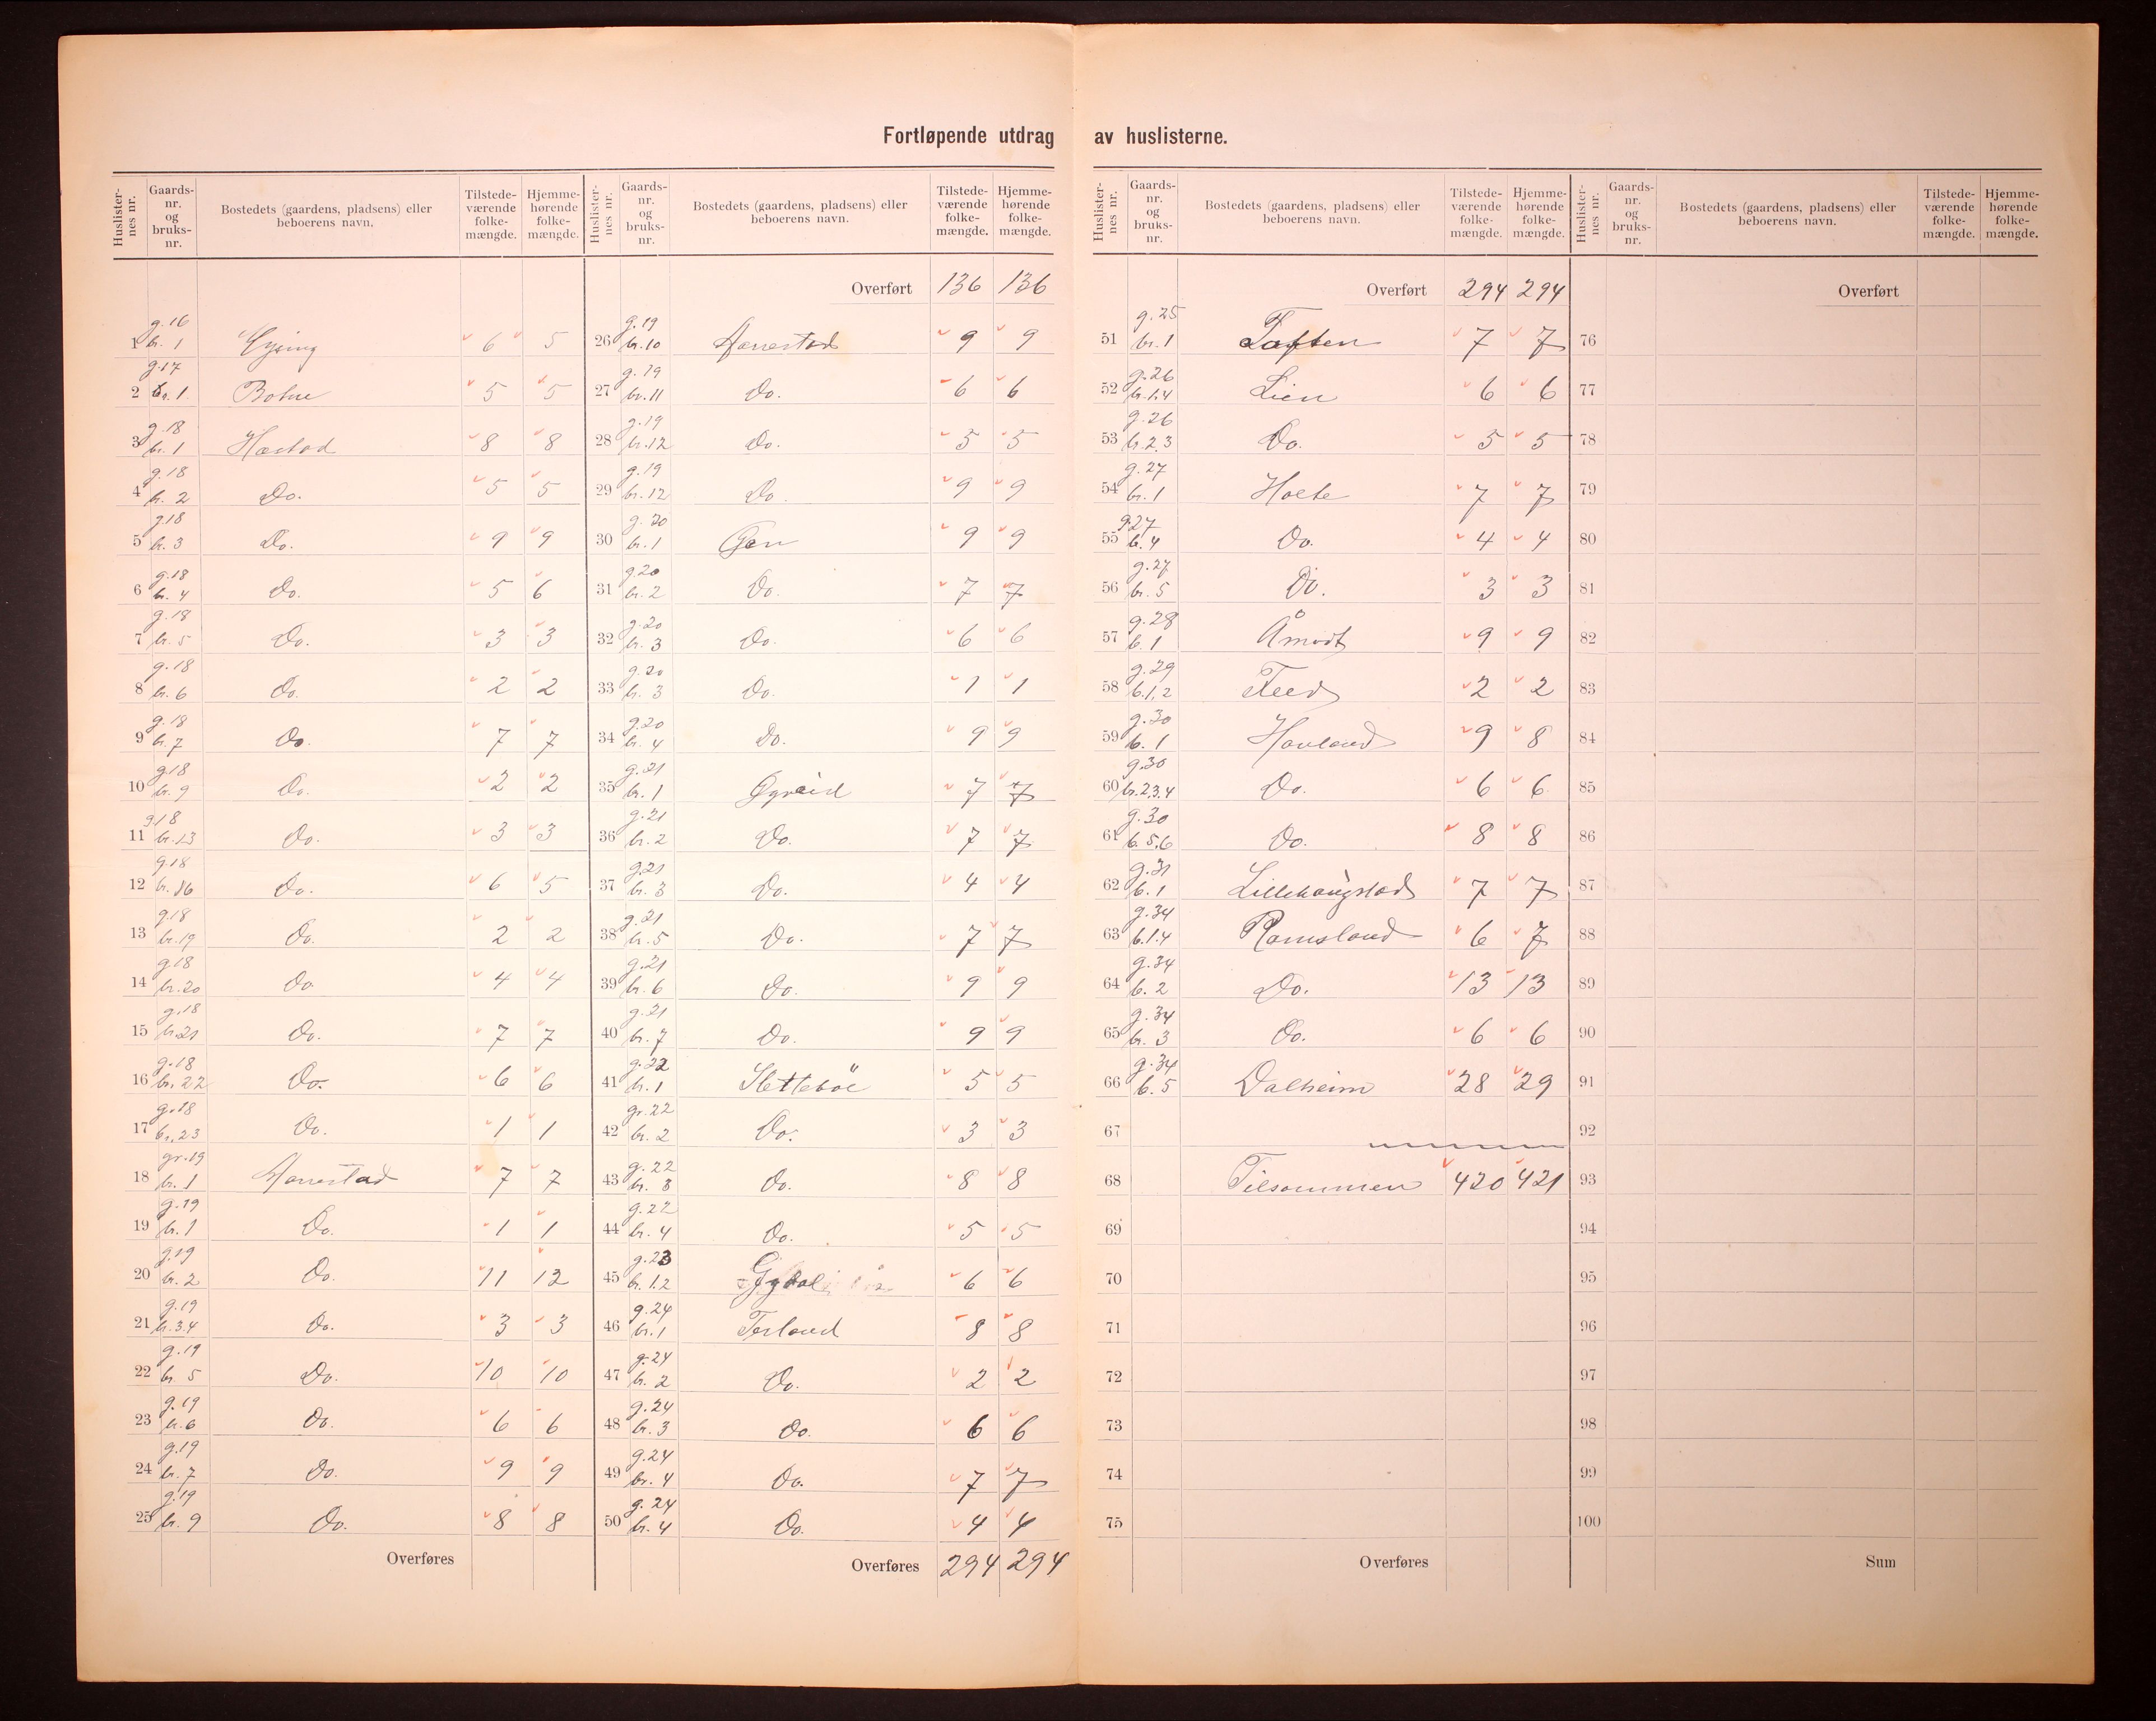 Fortløpende utdrag av huslisterne.
Huslister-nes nr. Gaards-nr. og bruks-nr. Bostedets (gaardens, pladsens) eller beboerens navn. Tilstede-værende folke-mængde. Hjemme-hørende folke-mængde.
1 g.16 br. 1 Eysing 6 5
2 g.17 br. 1. Botne 5 5
3 g.18 br. 1 Hæstad 8 8
4 g.18 br. 2 Do. 5 5
5 g.18 br. 3 Do. 9 9
6 g.18 br. 4 Do. 5 6
7 g.18 br. 5 Do. 3 3
8 g.18 br. 6 Do. 2 2
9 g.18 br. 7 Do. 7 7
10 g.18 br. 9 Do. 2 2
11 g.18 br. 13 Do. 3 3
12 g.18 br. 16 Do. 6 5
13 g.18 br. 19 Do. 2 2
14 g.18 br. 20 Do 4 4
15 g.18 br. 21 Do. 7 7
16 g.18 br. 22 Do. 6 6
17 g.18 br. 23 Do. 1 1
18 gr.19 br. 1 Hærrestad 7 7
19 g.19 br. 1 Do. 1 1
20 g.19 br. 2 Do. 11 12
21 g.19 br. 3.4 Do. 3 3
22 g.19 br 5 Do. 10 10
23 g.19 br. 6 Do. 6 6
24 g.19 br. 7 Do. 9 9
25 g.19 br. 9 Do. 8 8
Overføres
Huslister-nes nr. Gaards-nr. og bruks-nr. Bostedets (gaardens, pladsens) eller beboerens navn. Tilstede-værende folke-mængde. Hjemme-hørende folke-mængde.
Overført 136 136
26 g.19 br. 10 Hærrestad 9 9
27 g. 19 br. 11 Do. 6 6
28 g.19 br. 12 Do. 5 5
29 g.19 br. 12 Do. 9 9
30 g. 20 br. 1 Gjen 9 9
31 g.20 br. 2 Do. 7 7
32 g.20 br. 3 Do. 6 6
33 g.20 br. 3 Do. 1 1
34 g.20 br. 4 Do. 9 9
35 g.21 br. 1 Øgreid 7 7
36 g.21 br. 2 Do. 7 7
37 g.21 br. 3 Do. 4 4
38 g.21 br. 5 Do. 7 7
39 g.21 br. 6 Do. 9 9
40 g.21 br. 7 Do. 9 9
41 g.22 br. 1 Sletteböe 5 5
42 gr.22 br. 2 Do. 3 3
43 g. 22 br. 3 Do. 8 8
44 g.22 br. 4 Do. 5 5
45 g.23 br. 1.2 6 6
46 g.24 br. 1 Terland 8 8
47 g.24 br. 2 Do. 2 2
48 g.24 br. 3 Do. 6 6
49 g.24 br. 4 Do. 7 7
50 g. 24 br. 4 Do. 4 4
Overføres 294 294
Huslister-nes nr. Gaards-nr. og bruks-nr. Bostedets (gaardens, pladsens) eller beboerens navn. Tilstede-værende folke-mængde. Hjemme-hørende folke-mængde.
Overført 294 294
51 g.25 br. 1 Toften 7 7
52 g.26 br. 1.4 Lien 6 6
53 g.26 br. 2.3 Do. 5 5
54 g.27 br. 1 Holte 7 7
55 g.27 br. 4 Do. 4 4
56 g.27 br. 5 Do. 3 3
57 g.28 b. 1 Åmodt 9 9
58 g.29 b. 1,2 Feed 2 2
59 g.30 b. 1 Hovland 9 8
60 g.30 br. 2.3.4 Do. 6 6
61 g.30 b. 5,6 Do. 8 8
62 g.31 b. 1 Lillehaugstad 7 7
63 g.34 b. 1.4 Ramsland 6 7
64 g.34 b. 2 Do. 13 13
65 g.34 br. 3 Do. 6 6
66 g.34 b. 5 Dalheim 28 29
67
68 Tilsammen 420 421
69
70
71
72
73
74
75
Overføres
Huslister-nes nr. Gaards-nr. og bruks-nr. Bostedets (gaardens, pladsens) eller beboerens navn. Tilstede-værende folke-mængde. Hjemme-hørende folke-mængde.
Overført
76
77
78
79
80
81
82
83
84
85
86
87
88
89
90
91
92
93
94
95
96
97
98
99
100
Sum